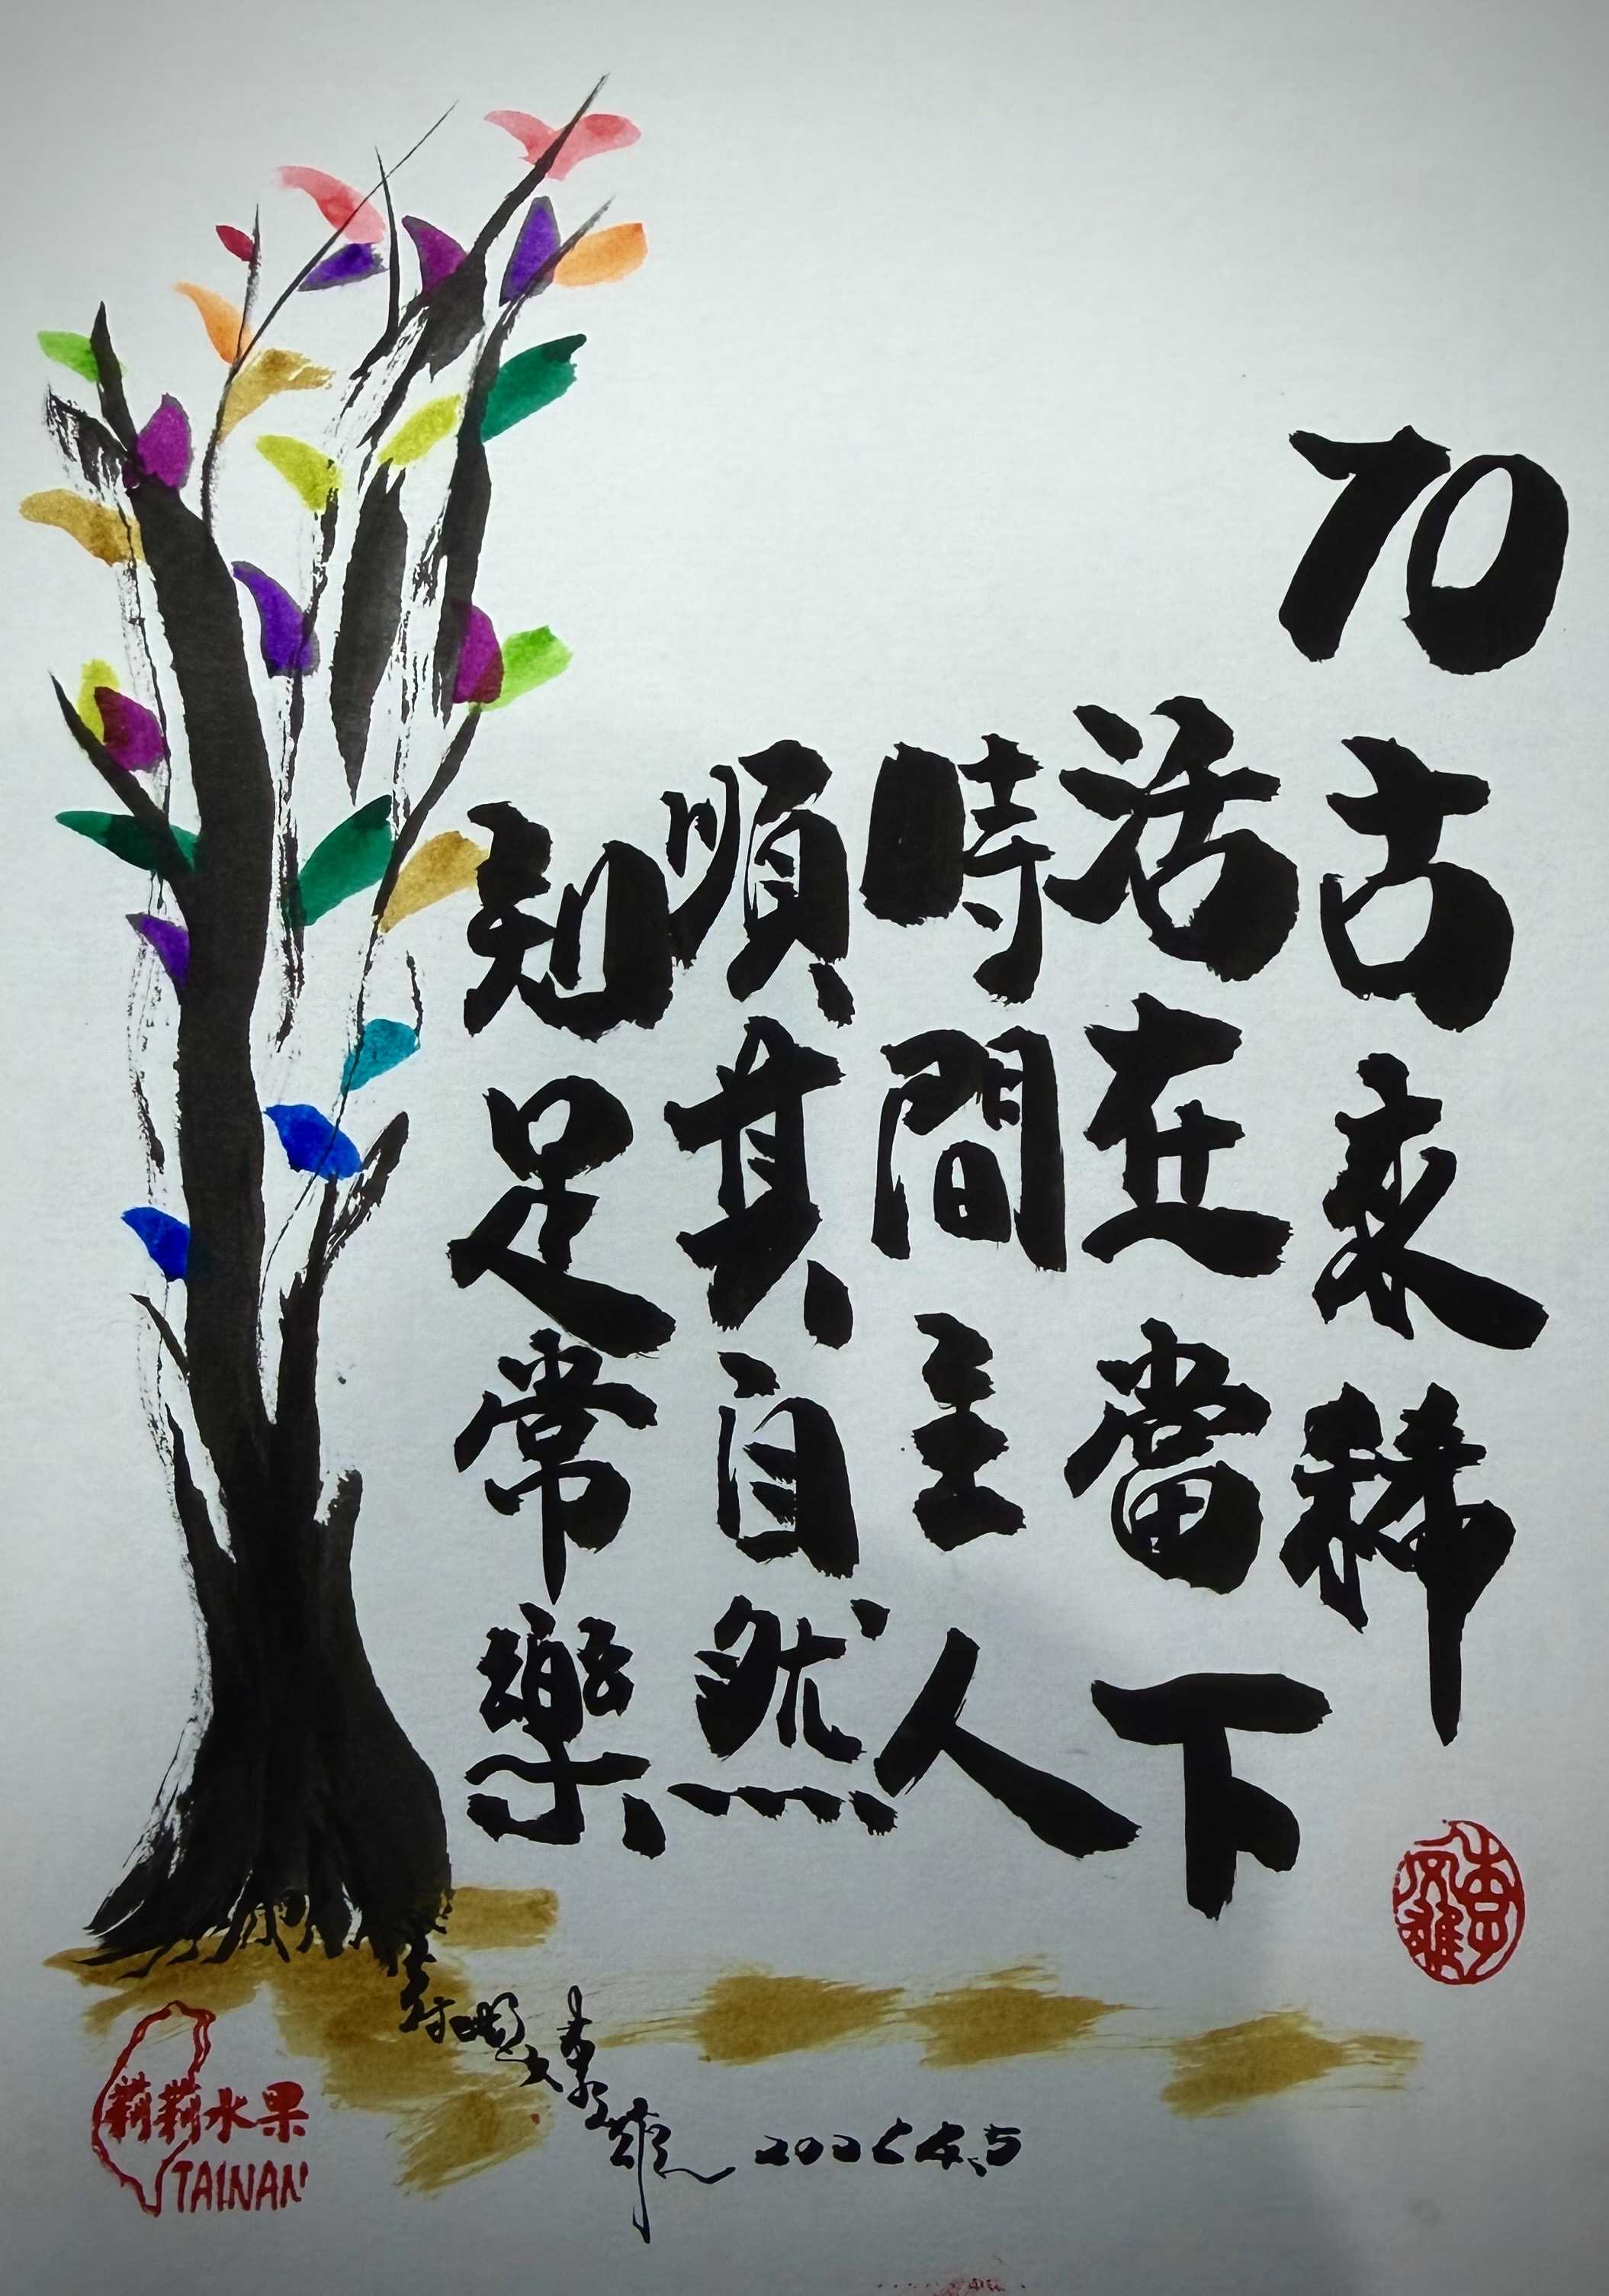 70古來稀
活在當下
時間主人
順其自然
知足常樂
李文雄
莉莉水果
TAINAN